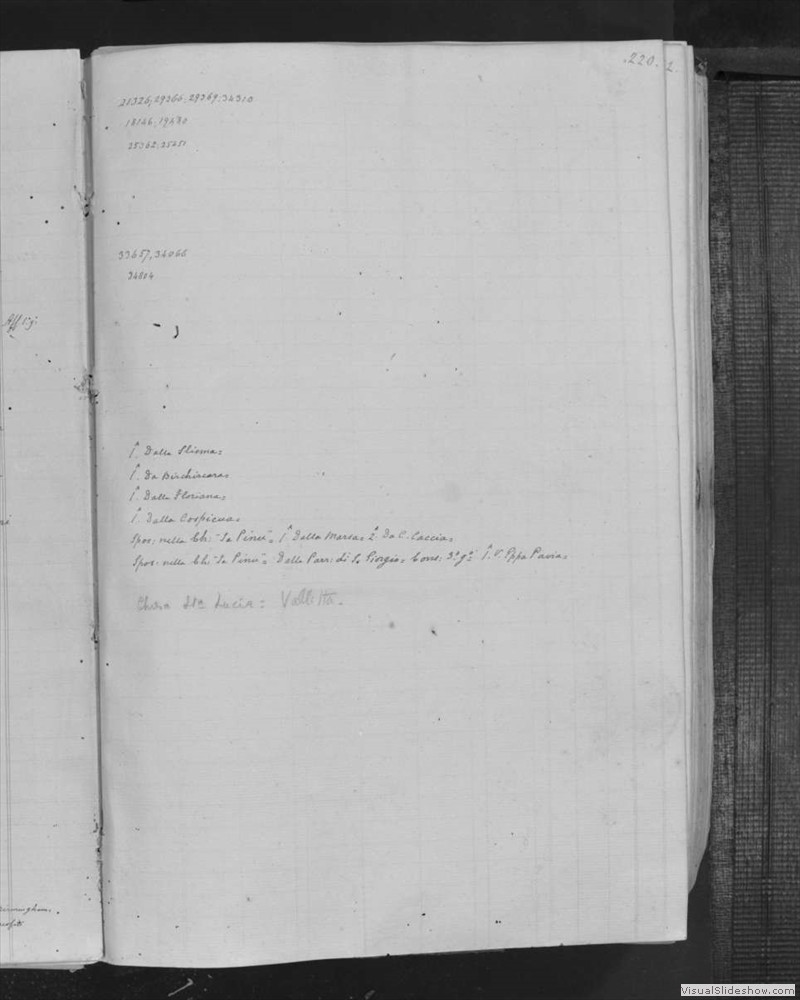 220. 2.
21326; 29366; 29369; 34310
18146; 19480
25362; 25251
33657, 34066
34804
Affig:
1ª Dalla Sliema=
1ª Da Birchircara=
1ª Dalla Floriana=
1ª Dalla Cospicua=
Spos: nella Ch: "Ta Pinu"= 1ª Dalla Marsa= 2º Da C. Caccia=
Spos: nella Ch: "Ta Pinu"= Dalla Parr: di S. Giorgio= Cons: 3º gº: 1ª V. Pppa Pavia=
Chiesa Sta Lucia: Valletta.
VisualSlideshow.com